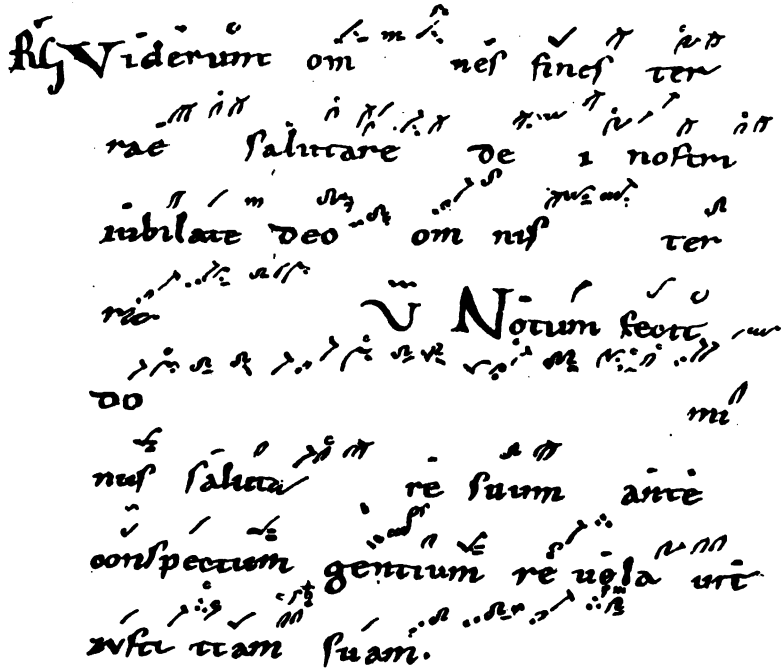 RG Viderunt om nes fines ter
rae salutare de i nostri
iubilate deo om nis ter
ra V Notum fecit
do mi
nus saluta re suum ante
conspectum gentium re vela vit
iusti tiam suam.